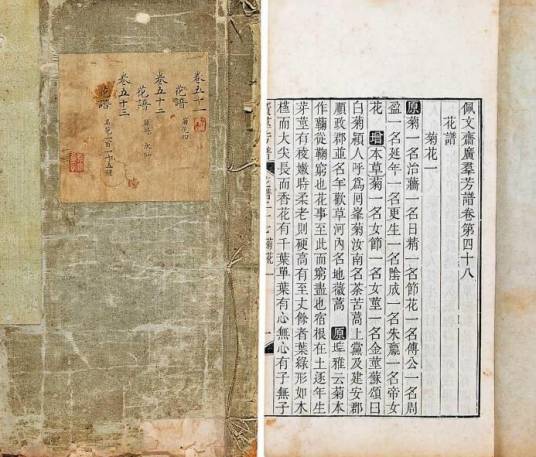 卷五十一
花譜
卷五十二
花譜
卷五十三
花譜
佩文齋廣羣芳譜卷第四十八
花譜
菊花一
原菊一名治蘠一名日精一名節花一名傅公一名周
盈一名延年一名更生一名陰成一名朱嬴一名帝女
花 增本草菊一名女節一名女莖一名金蕊蘇頌曰
白菊潁人呼爲回峯菊汝南名茶苦蒿上黨及建安郡
順政郡並名羊歡草河內名地薇蒿 原埤雅云菊本
作蘜從鞠窮也花事至此而窮盡也宿根在土逐年生
芽莖有稜嫩時柔老則硬高有至丈餘者葉綠形如木
槿而大尖長而香花有千葉單葉有心無心有子無子